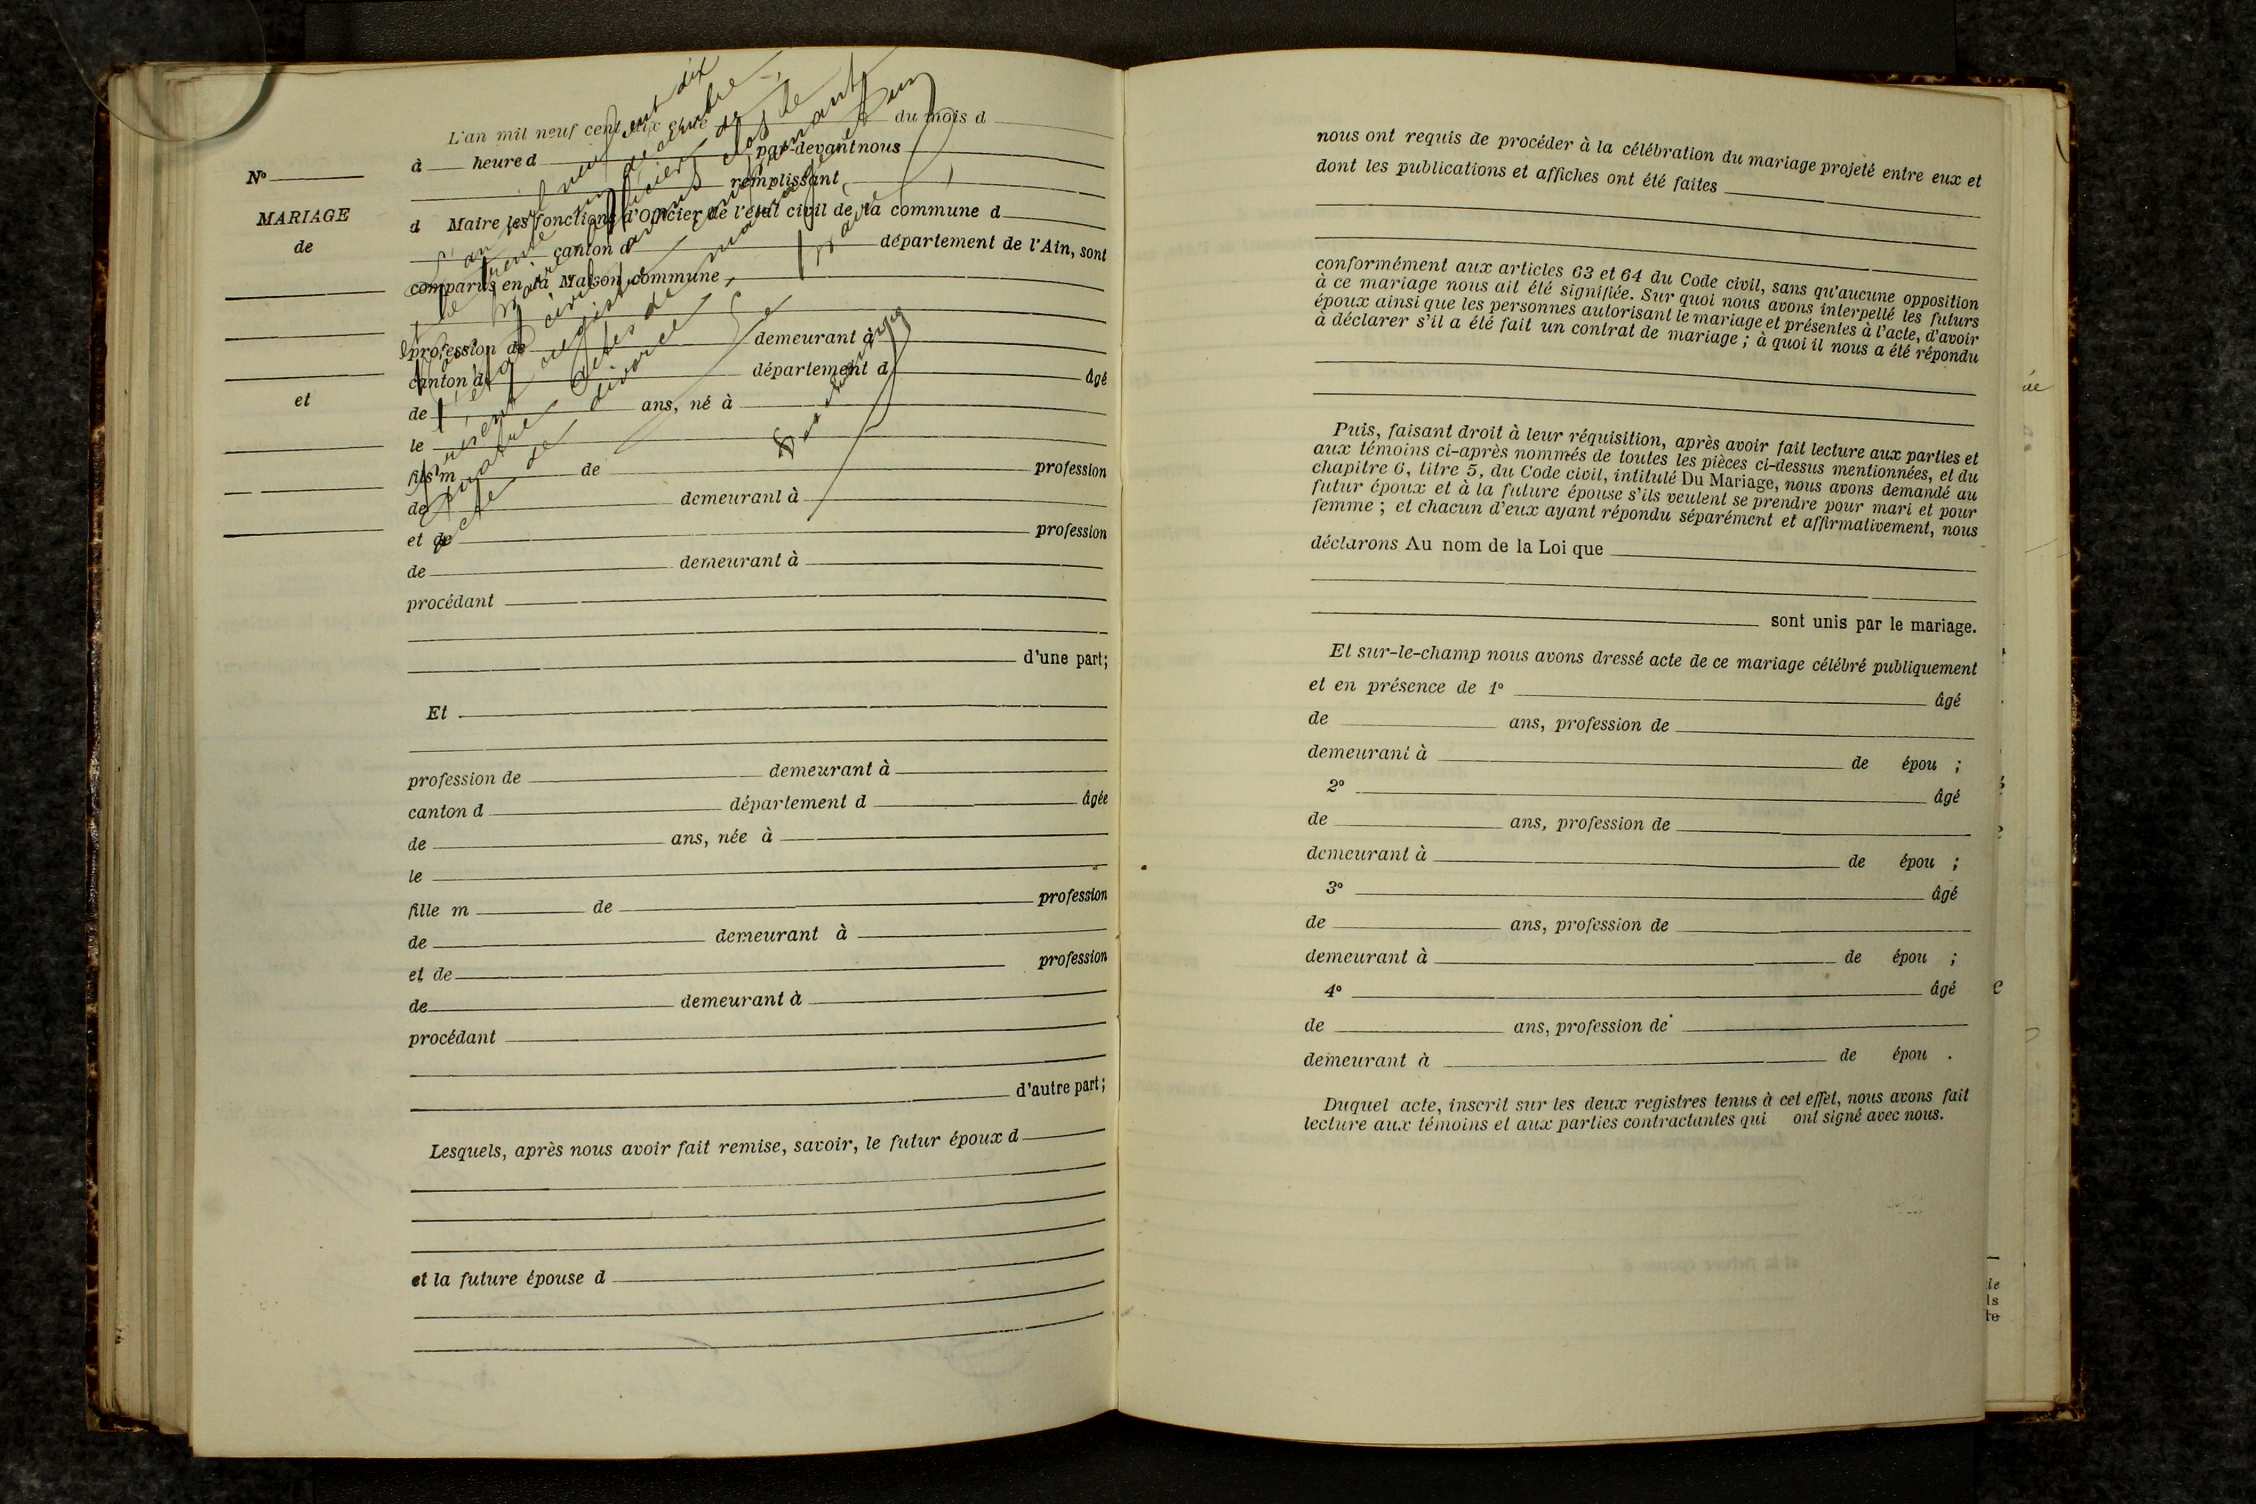 L'an mil neuf cent dix et le ______ du mois d ______
N° ______
à ___ heure d ______ par-devant nous ______
______ remplissant ______
MARIAGE
de
d Maire les fonctions d'Officier de l'état civil de la commune d ______
______ canton d ______ département de l'Ain, sont
comparus en la Maison commune,
profession de ______ demeurant à ______
canton d ______ département d ______ âgé
et
de ______ ans, né à ______
le ______
fils m ______ de ______ profession
de ______ demeurant à ______
et de ______ profession
de ______ demeurant à ______
procédant ______
______ d'une part;
Et ______
profession de ______ demeurant à ______
canton d ______ département d ______ âgée
de ______ ans, née à ______
le ______
fille m ______ de ______ profession
de ______ demeurant à ______
et de ______ profession
de ______ demeurant à ______
procédant ______
______ d'autre part;
Lesquels, après nous avoir fait remise, savoir, le futur époux d ______
et la future épouse d ______
L'an mil neuf cent dix
et le trente un décembre,
Nous Maire officier de
l'état civil avons clos le
présent registre contenant
quatre actes de mariage et un
acte de divorce,
Le Maire,
nous ont requis de procéder à la célébration du mariage projeté entre eux et
dont les publications et affiches ont été faites ______
conformément aux articles 63 et 64 du Code civil, sans qu'aucune opposition
à ce mariage nous ait été signifiée. Sur quoi nous avons interpellé les futurs
époux ainsi que les personnes autorisant le mariage et présentes à l'acte, d'avoir
à déclarer s'il a été fait un contrat de mariage ; à quoi il nous a été répondu
Puis, faisant droit à leur réquisition, après avoir fait lecture aux parties et
aux témoins ci-après nommés de toutes les pièces ci-dessus mentionnées, et du
chapitre 6, titre 5, du Code civil, intitulé Du Mariage, nous avons demandé au
futur époux et à la future épouse s'ils veulent se prendre pour mari et pour
femme ; et chacun d'eux ayant répondu séparément et affirmativement, nous
déclarons Au nom de la Loi que ______
______ sont unis par le mariage.
Et sur-le-champ nous avons dressé acte de ce mariage célébré publiquement
et en présence de 1° ______ âgé
de ______ ans, profession de ______
demeurant à ______ de épou ;
2° ______ âgé
de ______ ans, profession de ______
demeurant à ______ de épou ;
3° ______ âgé
de ______ ans, profession de ______
demeurant à ______ de épou ;
4° ______ âgé
de ______ ans, profession de ______
demeurant à ______ de épou .
Duquel acte, inscrit sur les deux registres tenus à cet effet, nous avons fait
lecture aux témoins et aux parties contractantes qui ont signé avec nous.